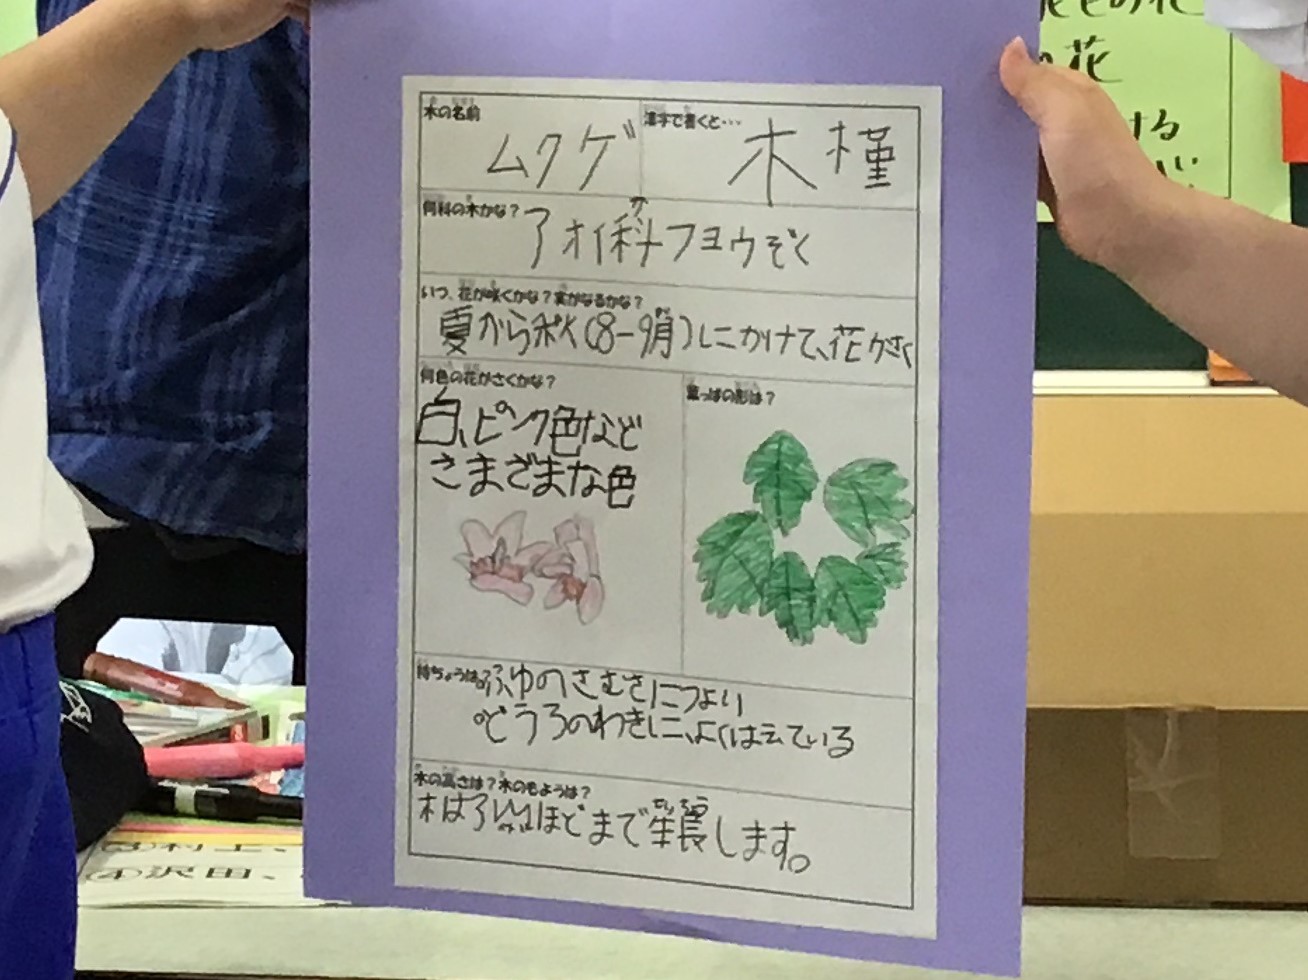 木の名前
ムクゲ
漢字で書くと…
木槿
何科の木かな？
アオイ科フヨウぞく
いつ、花が咲くかな？実がなるかな？
夏から秋(8-9月)にかけて、花がさく
何色の花がさくかな？
白、ピンク色など
さまざまな色
葉っぱの形は？
特ちょうは？
ふゆのさむさにつよい
どうろのわきに、よくはえている
木の高さは？木のもようは？
木は3mほどまで生長します。
の花
花
ける
④沢田、